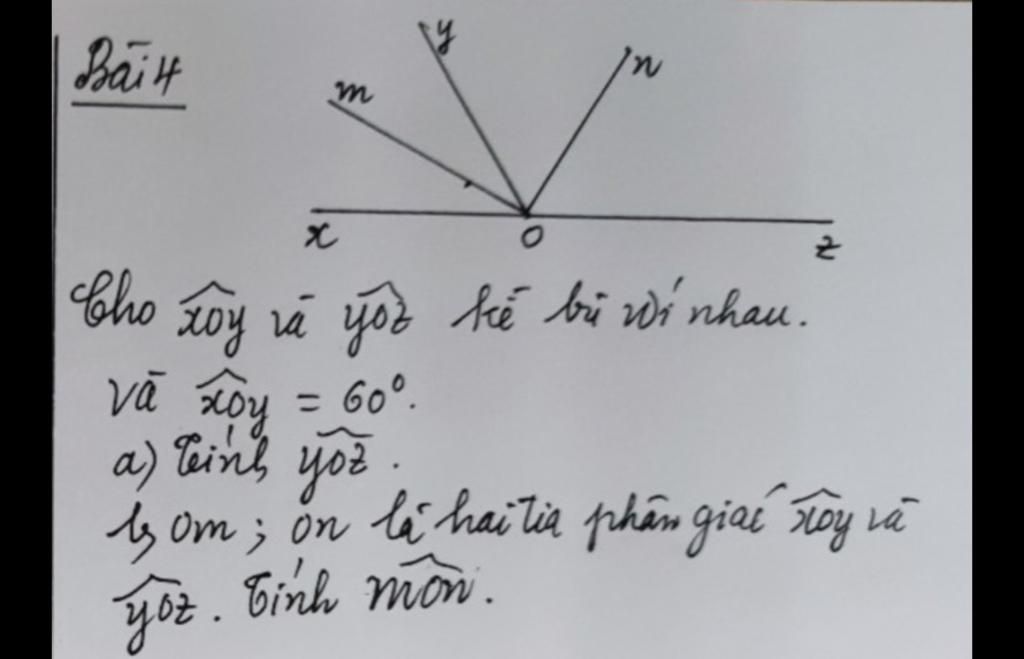 Bài 4
y
n
m
x
O
z
Cho xOy và yOz kề bù với nhau.
Và xOy = 60°.
a) Tính yOz.
b, Om; On là hai tia phân giác xOy và
yOz. Tính mOn.